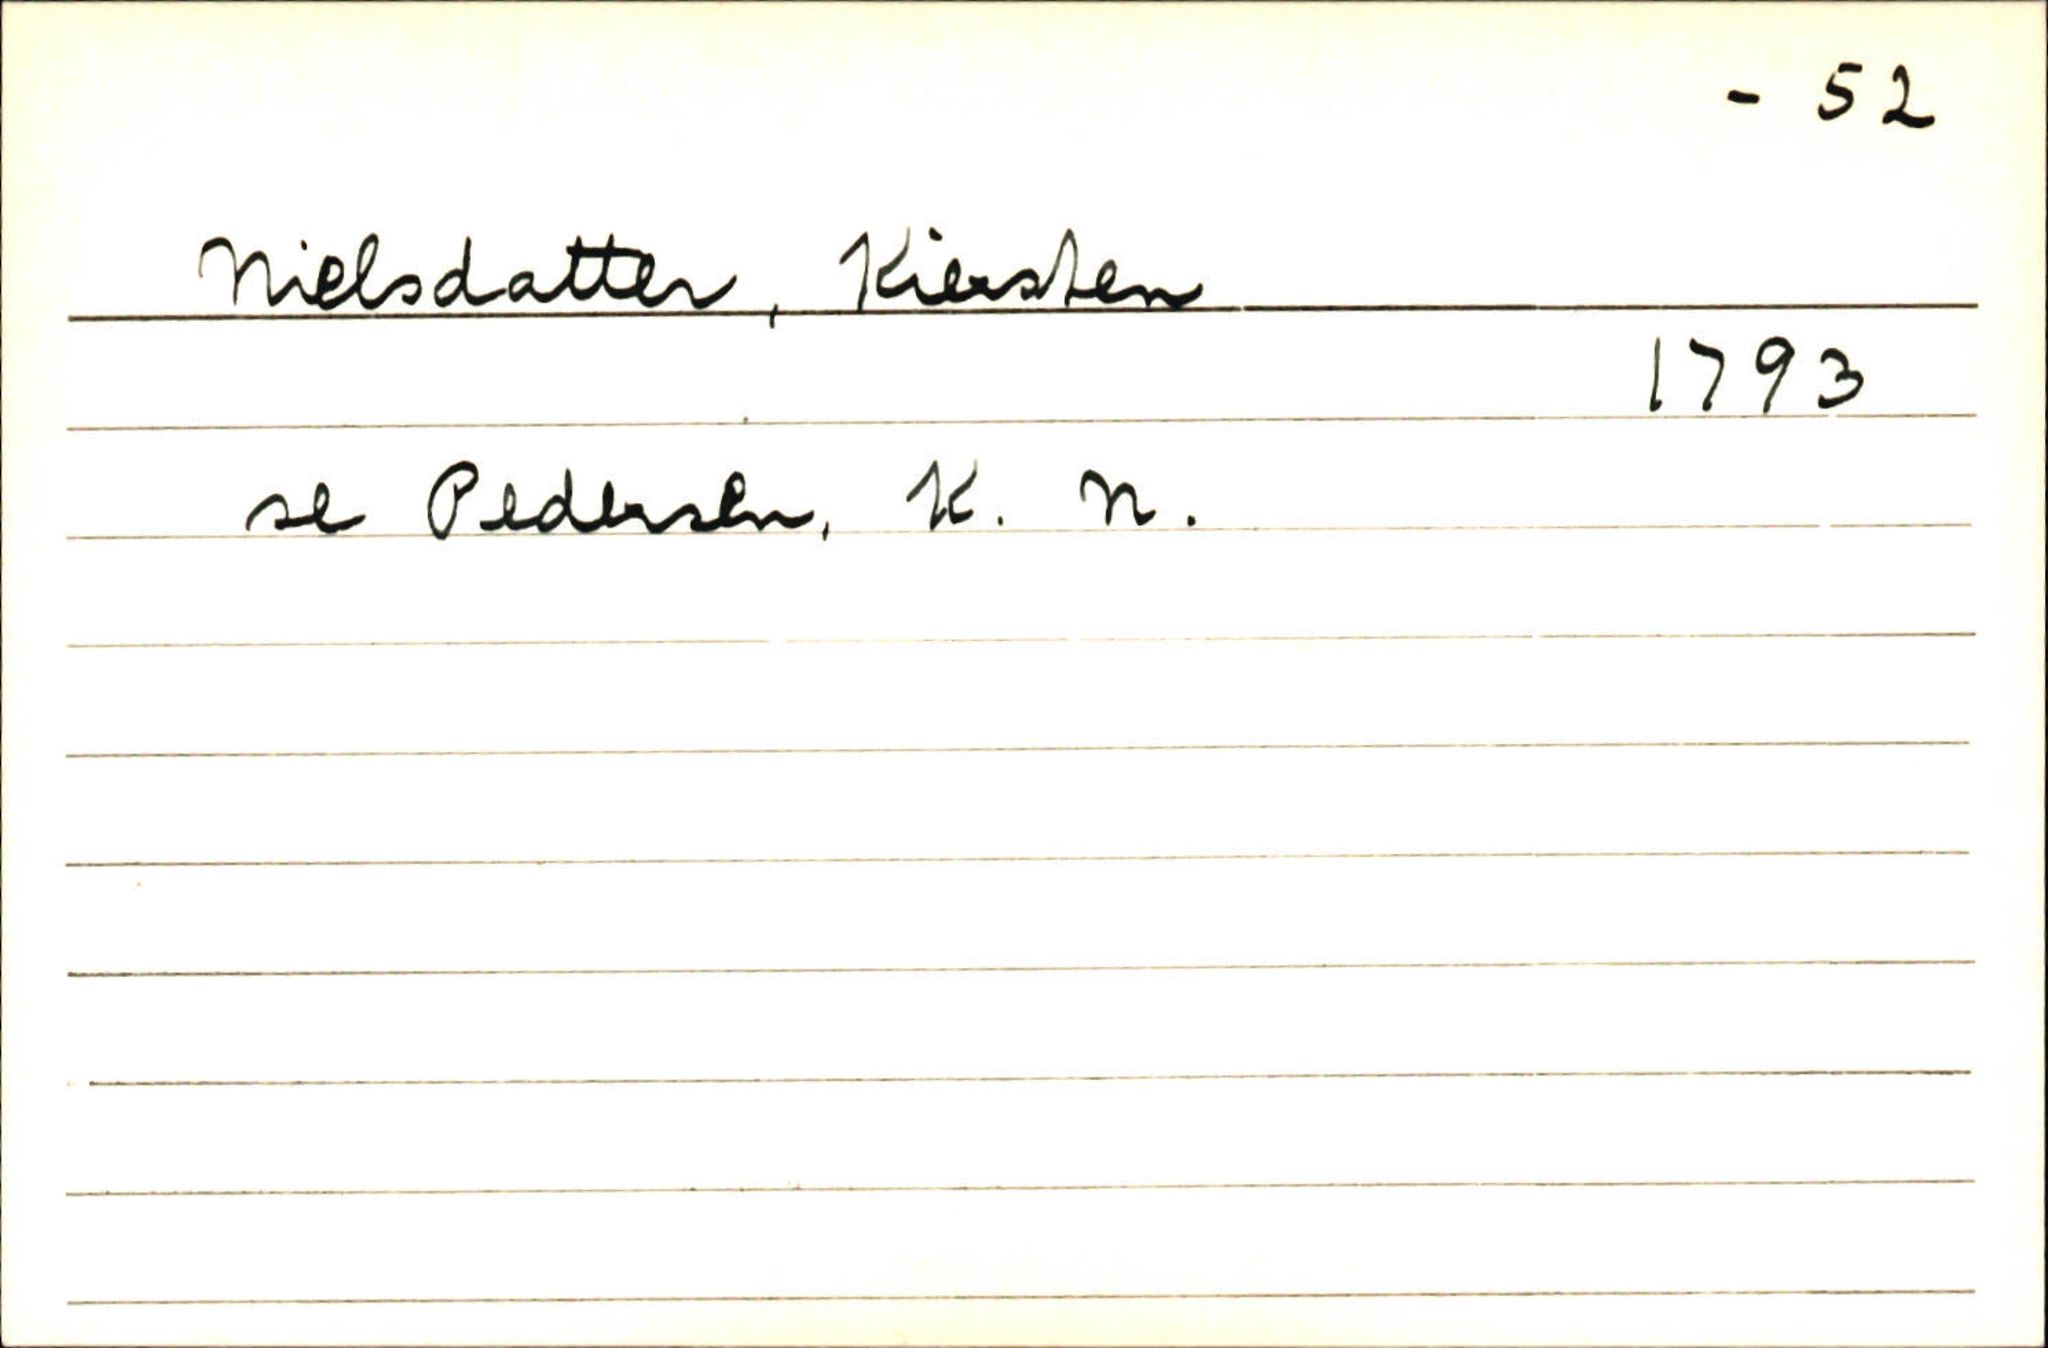 - 52
Nielsdatter, Kiersten
1793
se Pedersen, K. N.